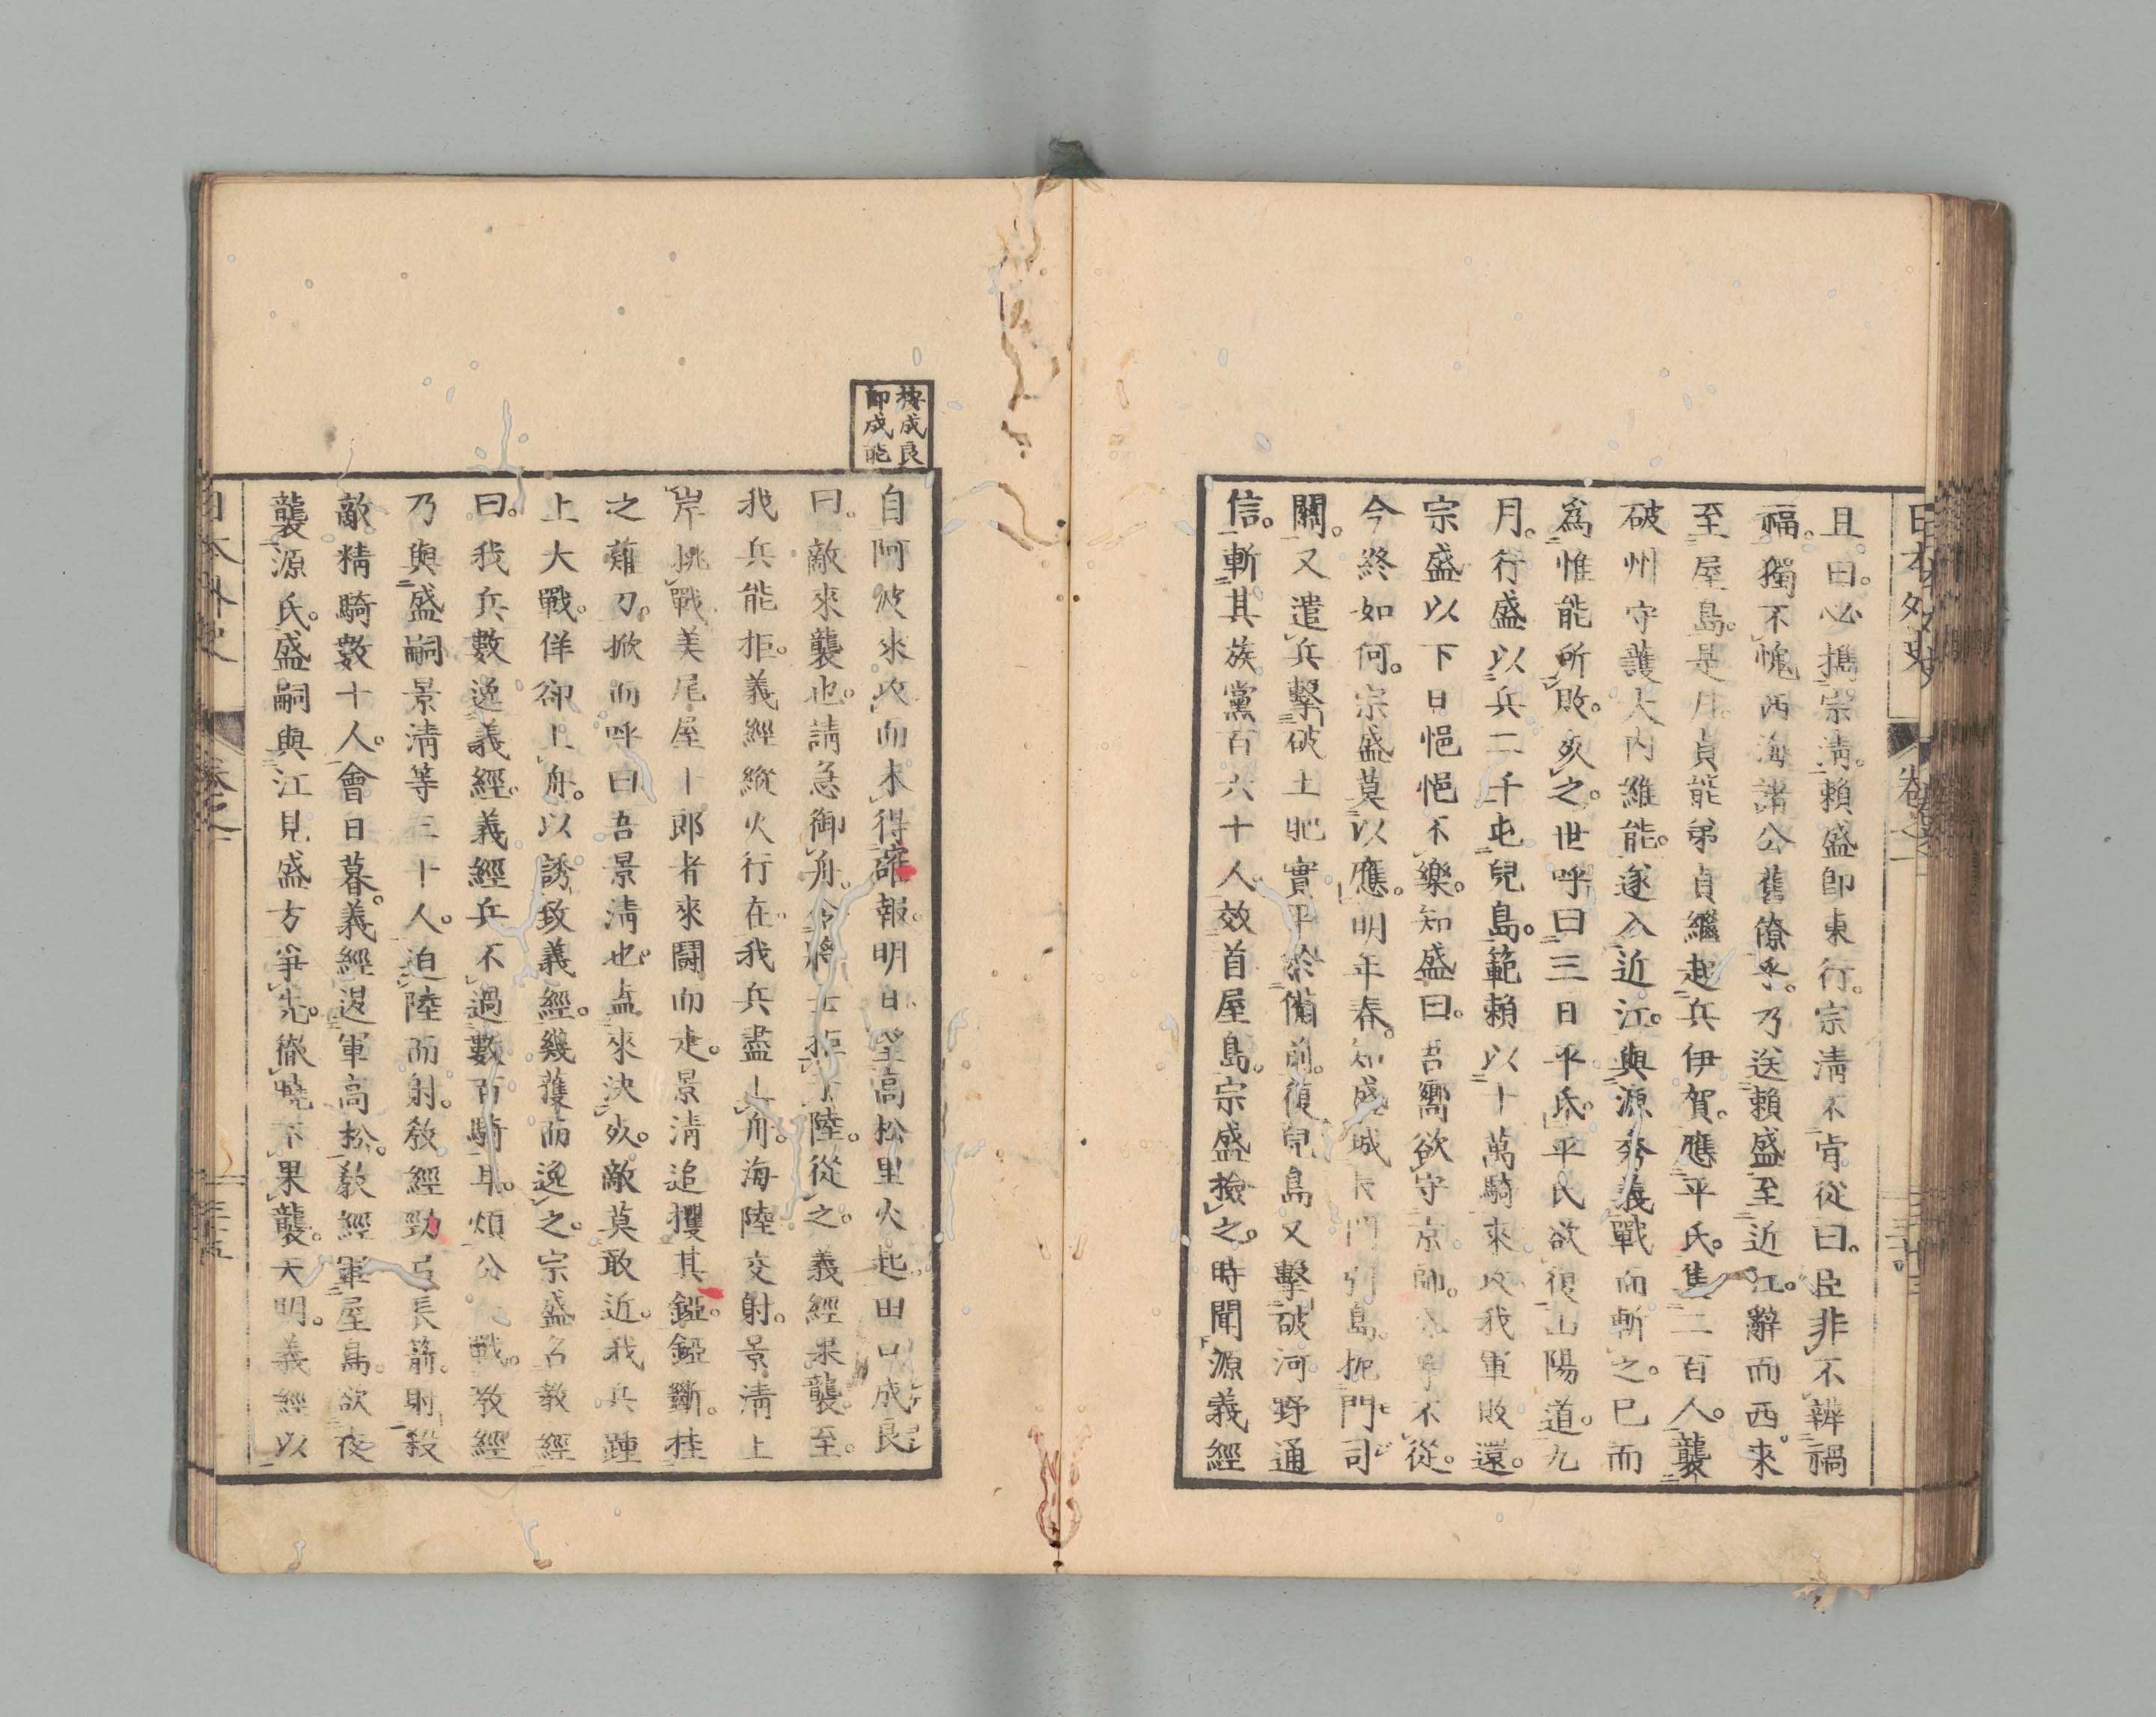 日本外史
卷之一
且曰。必攜宗淸。賴盛卽東行。宗淸不肯從曰。臣非不辨禍
福。獨不愧西海諸公舊僚乎。乃送賴盛至近江。辭而西。來
至屋島。是月。貞能弟貞繼起兵伊賀。應平氏。隻二百人。襲
破州守護大內維能。遂入近江。與源秀義戰而斬之。已而
爲惟能所敗。死之。世呼曰三日平氏。平氏欲復山陽道。九
月。行盛以兵二千屯兒島。範賴以十萬騎來攻。我軍敗還。
宗盛以下日悒悒不樂。知盛曰。吾嚮欲守京師。公等不從。
今終如何。宗盛莫以應。明年春。知盛城長門引島。扼門司
關。又遣兵擊破土肥實平於備前。復兒島。又擊破河野通
信。斬其族黨百六十人。效首屋島。宗盛撿之。時聞源義經
按成良
卽成能
自阿波來攻。而未得確報。明日。望高松里火起。田口成良
曰。敵來襲也。請急御舟。令將士拒于陸。從之。義經果襲至。
我兵能拒。義經縱火行在。我兵盡上舟。海陸交射。景淸上
岸挑戰。美尾屋十郎者來鬪而走。景淸追攫其錏。錏斷。挂
之薙刀。掀而呼曰。吾景淸也。盍來決死。敵莫敢近。我兵踵
上大戰。佯卻上舟。以誘致義經。幾獲而逸之。宗盛召敎經
曰。我兵數逸義經。義經兵不過數百騎耳。煩公一戰。敎經
乃與盛嗣景淸等三十人。迫陸而射。敎經勁弓長箭。射殺
敵精騎數十人。會日暮。義經退軍高松。敎經軍屋島。欲夜
襲源氏。盛嗣與江見盛方爭先。徹曉不果襲。天明。義經以
日本外史
卷之一
三十五